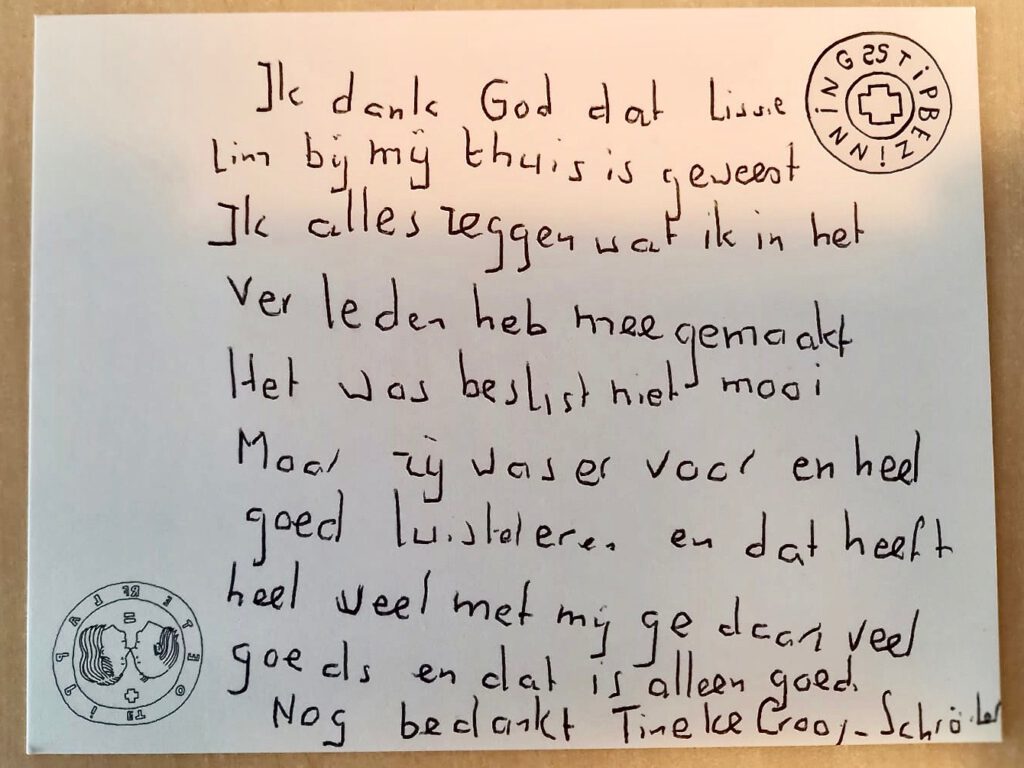 Ik dank God dat Lissie
Lim bij mij thuis is geweest
Ik alles zeggen wat ik in het
ver leden heb mee gemaakt
Het was beslist niet mooi
Maar zij was er voor en heel
goed en dat heeft
heel veel met mij ge daan veel
goeds en dat is alleen goed.
Nog bedankt Tineke
STIPBEZINNING